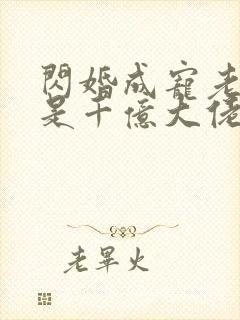 閃婚成寵老
是千億大佬
老畢火